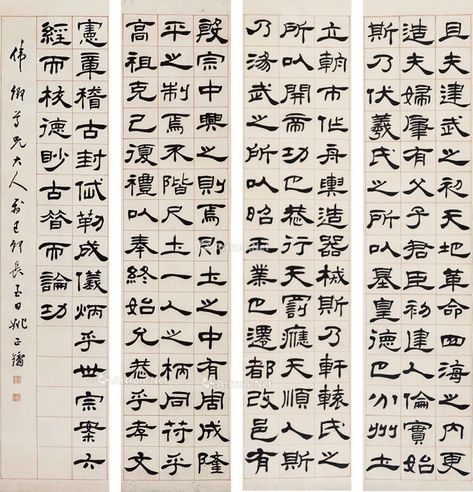 且夫建武之初天地革命四海之内更
造夫婦肇有父子君臣初建人倫實始
斯乃伏羲氏之所以基皇德也分州土
立朝市作舟輿造器械斯乃軒轅氏之
所以開帝功也恭行天罰應天順人斯
乃湯武之所以昭王業也遷都改邑有
殷宗中興之則焉即土之中有周成隆
平之制焉不階尺土一人之柄同符乎
高祖克己復禮以奉終始允恭乎孝文
憲章稽古封岱勒成儀炳乎世宗案六
經而核德眇古昔而論功
偉卿尊兄大人 己卯長至日姚正鏞